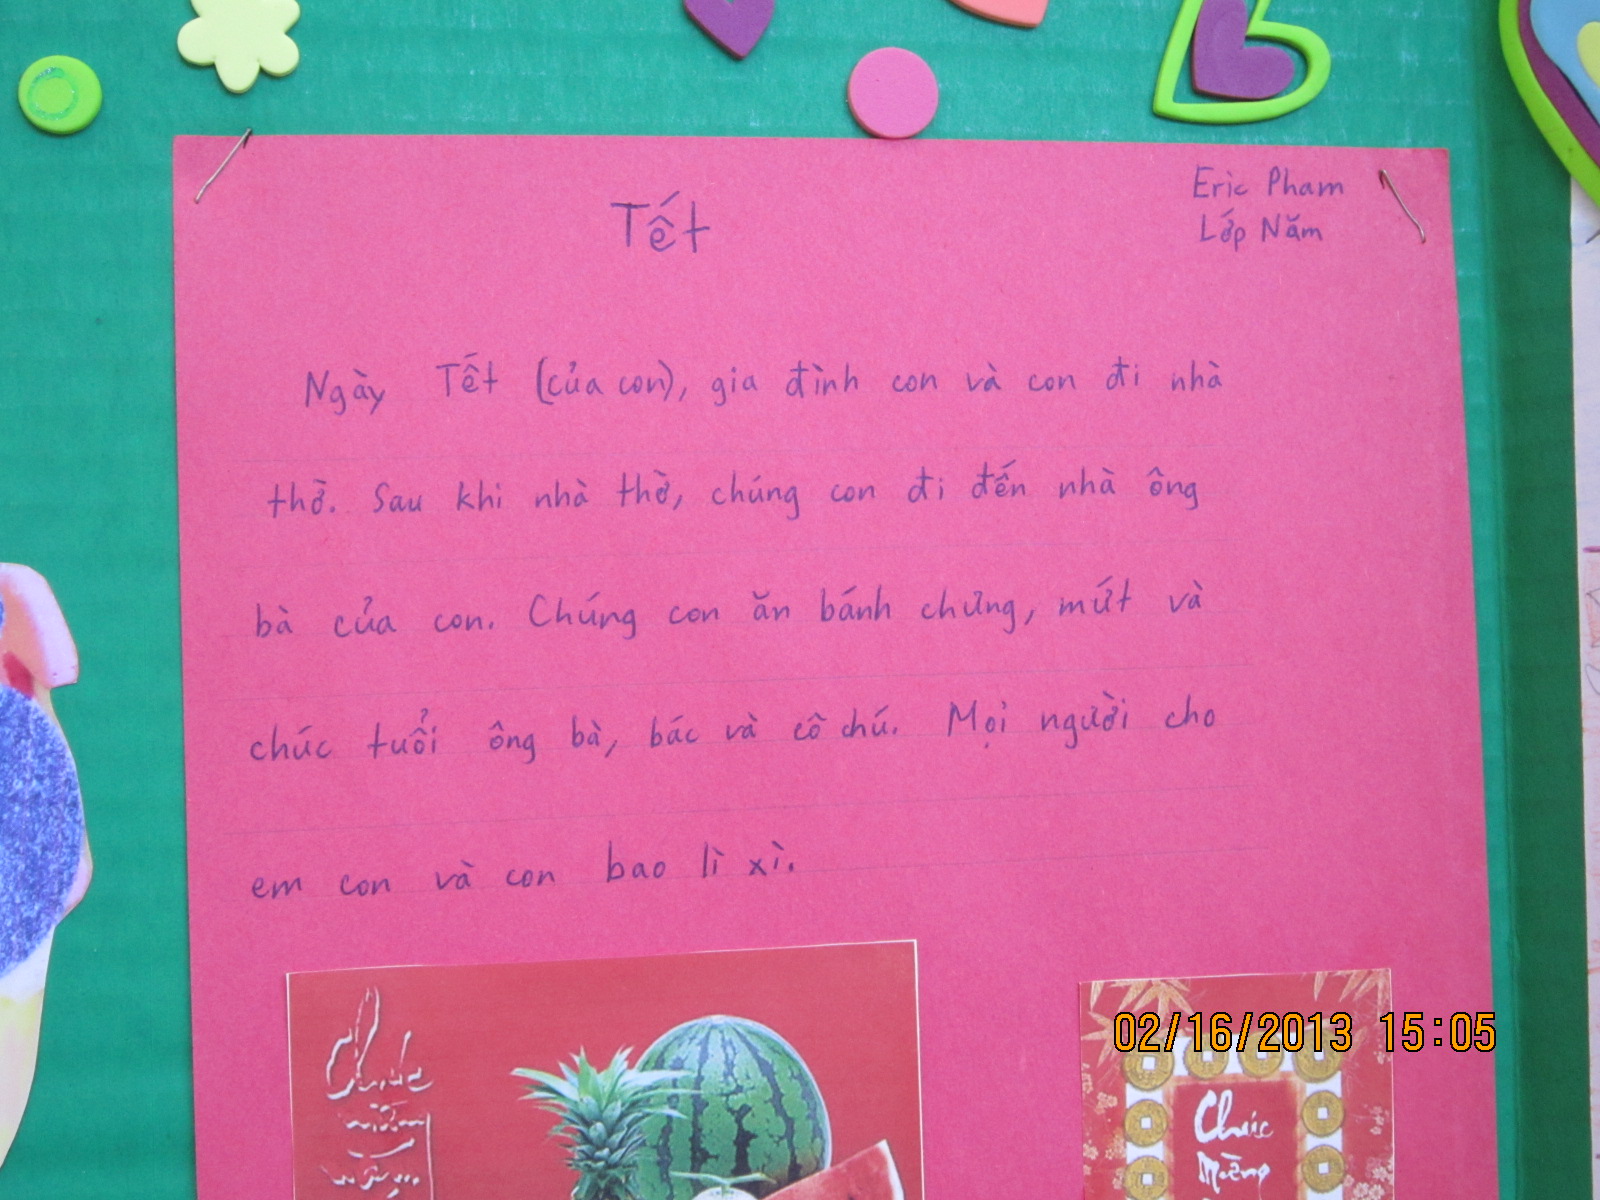 Tết
Eric Pham
Lớp Năm
Ngày Tết (của con), gia đình con và con đi nhà
thờ. Sau khi nhà thờ, chúng con đi đến nhà ông
bà của con. Chúng con ăn bánh chưng, mứt và
chúc tuổi ông bà, bác và cô chú. Mọi người cho
em con và con bao lì xì.
Chúc
năm
02/16/2013 15:05
Chúc
Mừng